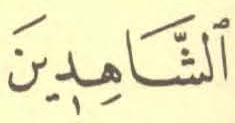 ٱلشَّاهِدِينَ